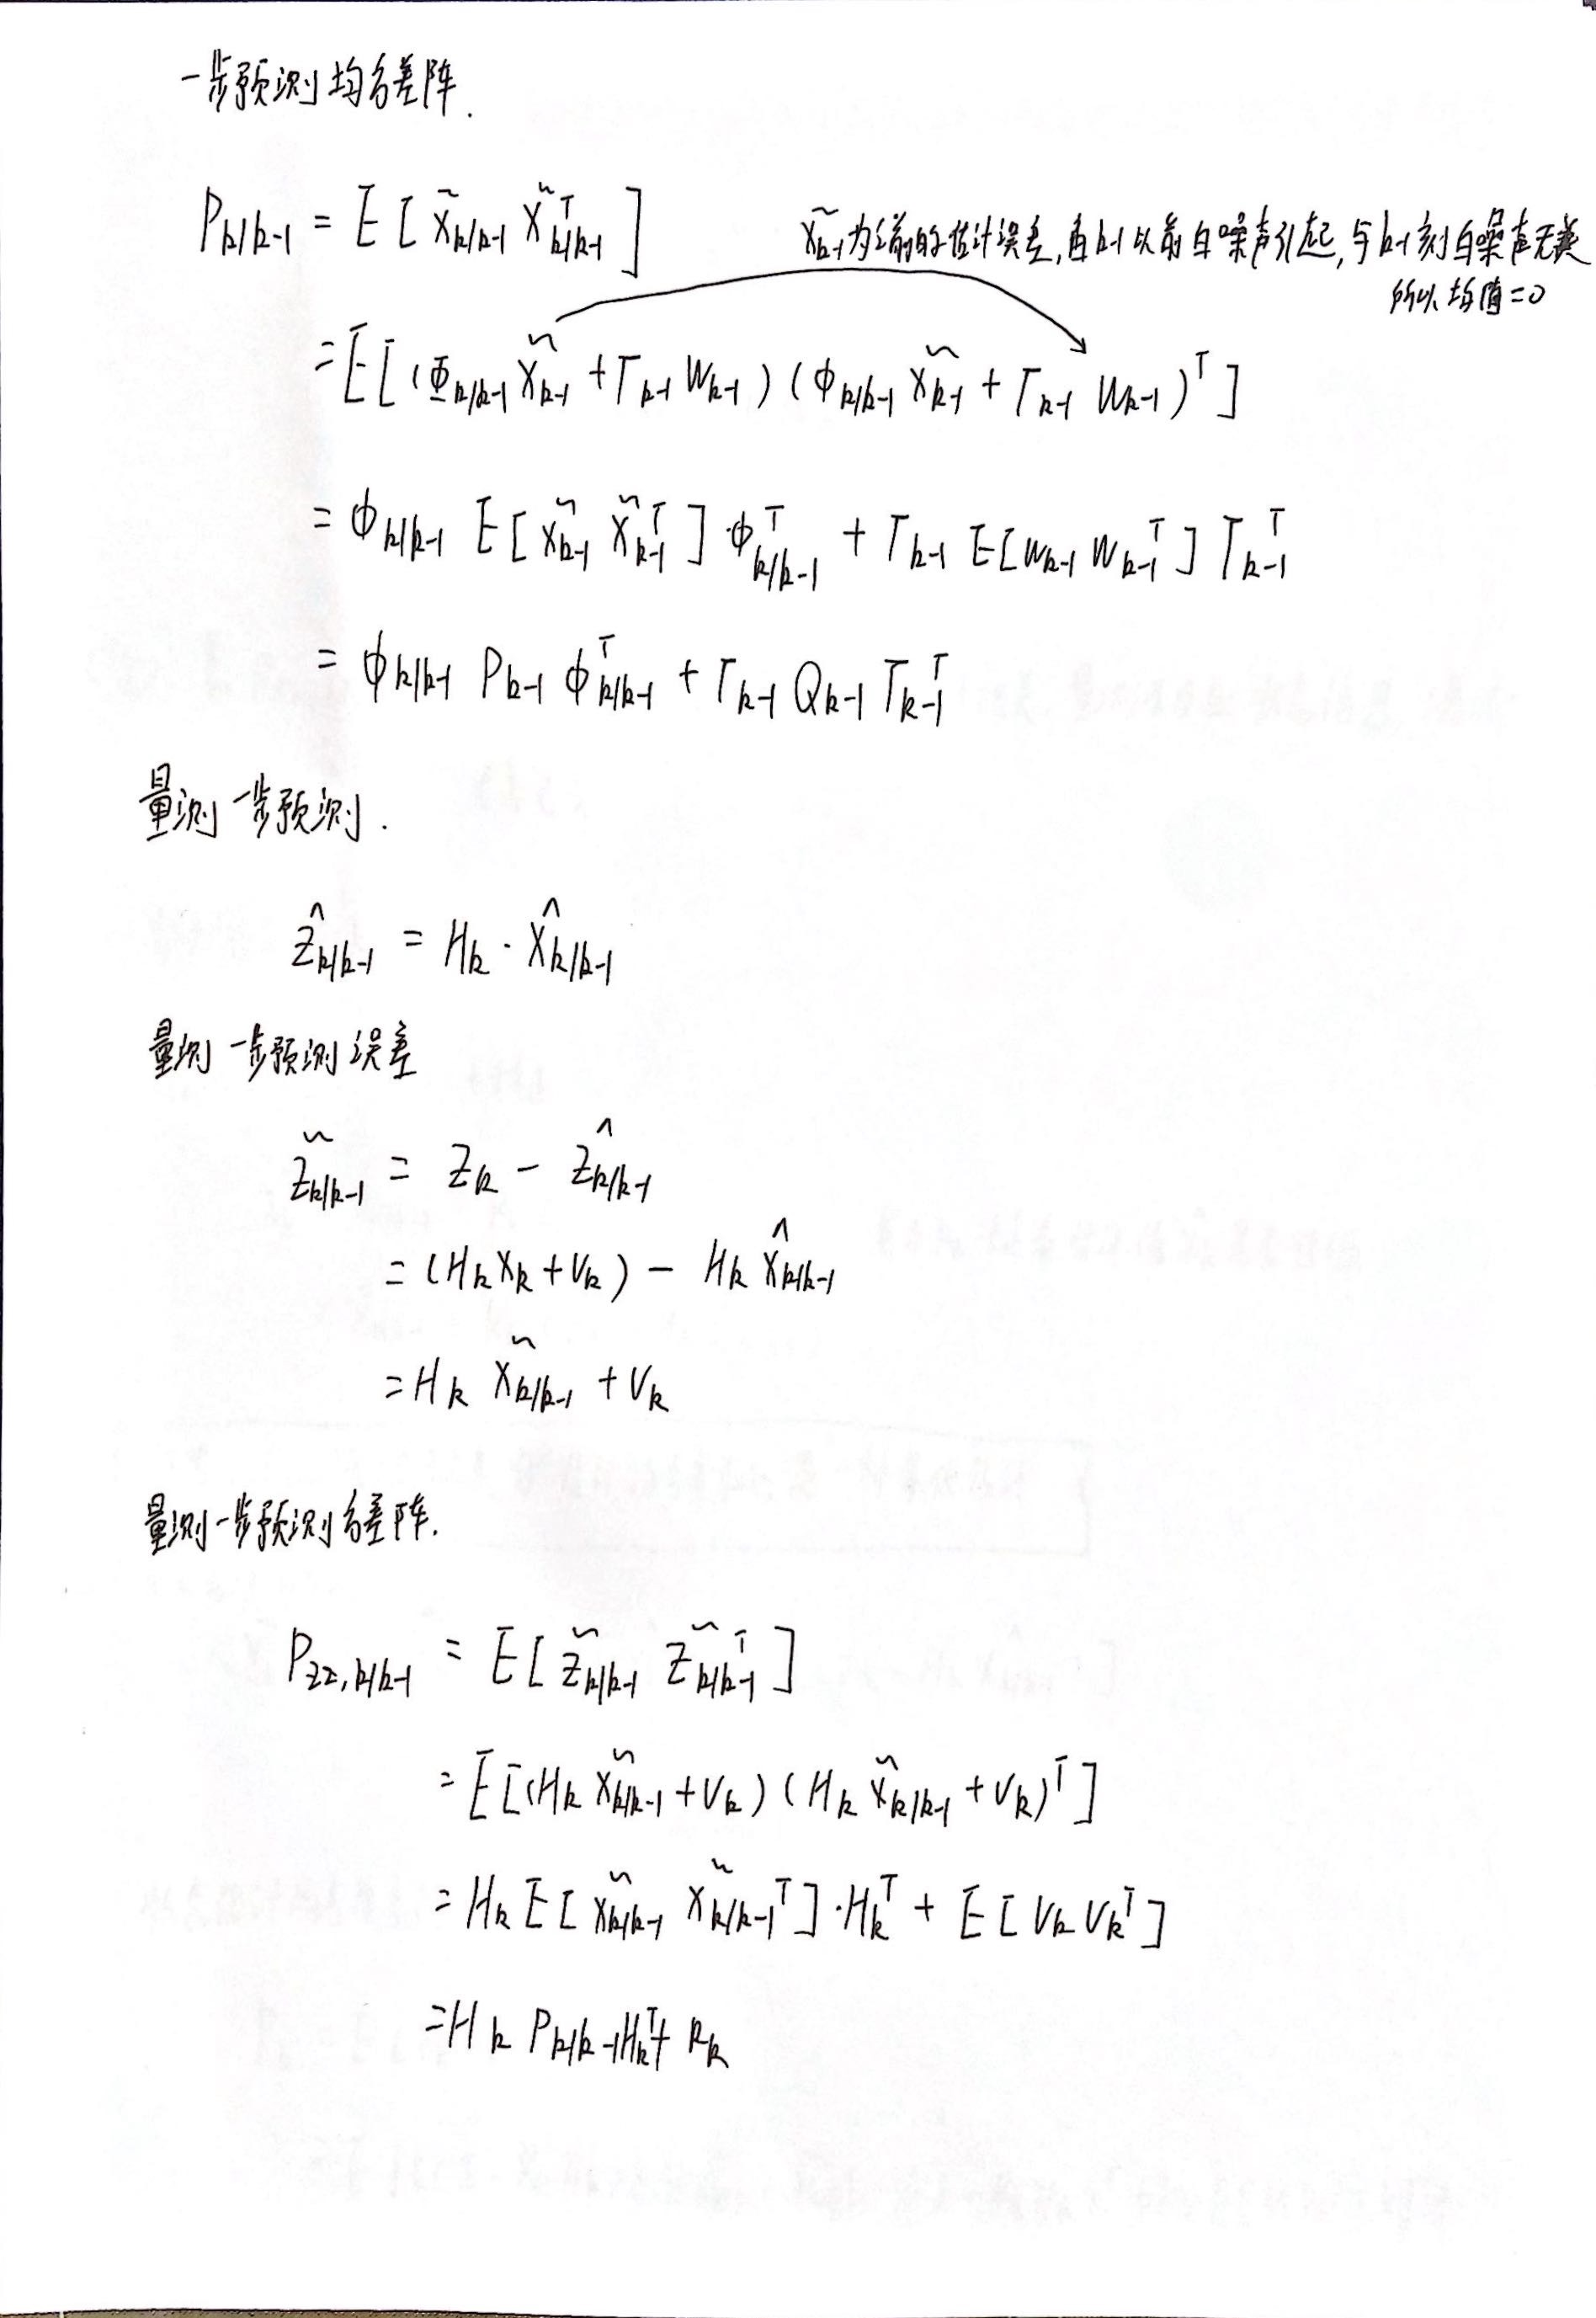 一步预测均方差阵.
P_{k/k-1} = E [ \tilde{X}_{k/k-1} \tilde{X}_{k/k-1}^T ]
\tilde{X}_{k-1}为之前的估计误差,由k-1以前白噪声引起,与k-1刻白噪声无关
所以均值=0
= E [ (Φ_{k/k-1} \tilde{X}_{k-1} + Γ_{k-1} W_{k-1}) (Φ_{k/k-1} \tilde{X}_{k-1} + Γ_{k-1} W_{k-1})^T ]
= Φ_{k/k-1} E [ \tilde{X}_{k-1} \tilde{X}_{k-1}^T ] · Φ_{k/k-1}^T + Γ_{k-1} E [ W_{k-1} W_{k-1}^T ] Γ_{k-1}^T
= Φ_{k/k-1} P_{k-1} Φ_{k/k-1}^T + Γ_{k-1} Q_{k-1} Γ_{k-1}^T
量测一步预测.
\hat{Z}_{k/k-1} = H_k · \hat{X}_{k/k-1}
量测一步预测误差
\tilde{Z}_{k/k-1} = Z_k - \hat{Z}_{k/k-1}
= (H_k X_k + V_k) - H_k \hat{X}_{k/k-1}
= H_k \tilde{X}_{k/k-1} + V_k
量测一步预测方差阵.
P_{ZZ,k/k-1} = E [ \tilde{Z}_{k/k-1} \tilde{Z}_{k/k-1}^T ]
= E [ (H_k \tilde{X}_{k/k-1} + V_k) (H_k \tilde{X}_{k/k-1} + V_k)^T ]
= H_k E [ \tilde{X}_{k/k-1} \tilde{X}_{k/k-1}^T ] · H_k^T + E [ V_k V_k^T ]
= H_k P_{k/k-1} H_k^T + R_k